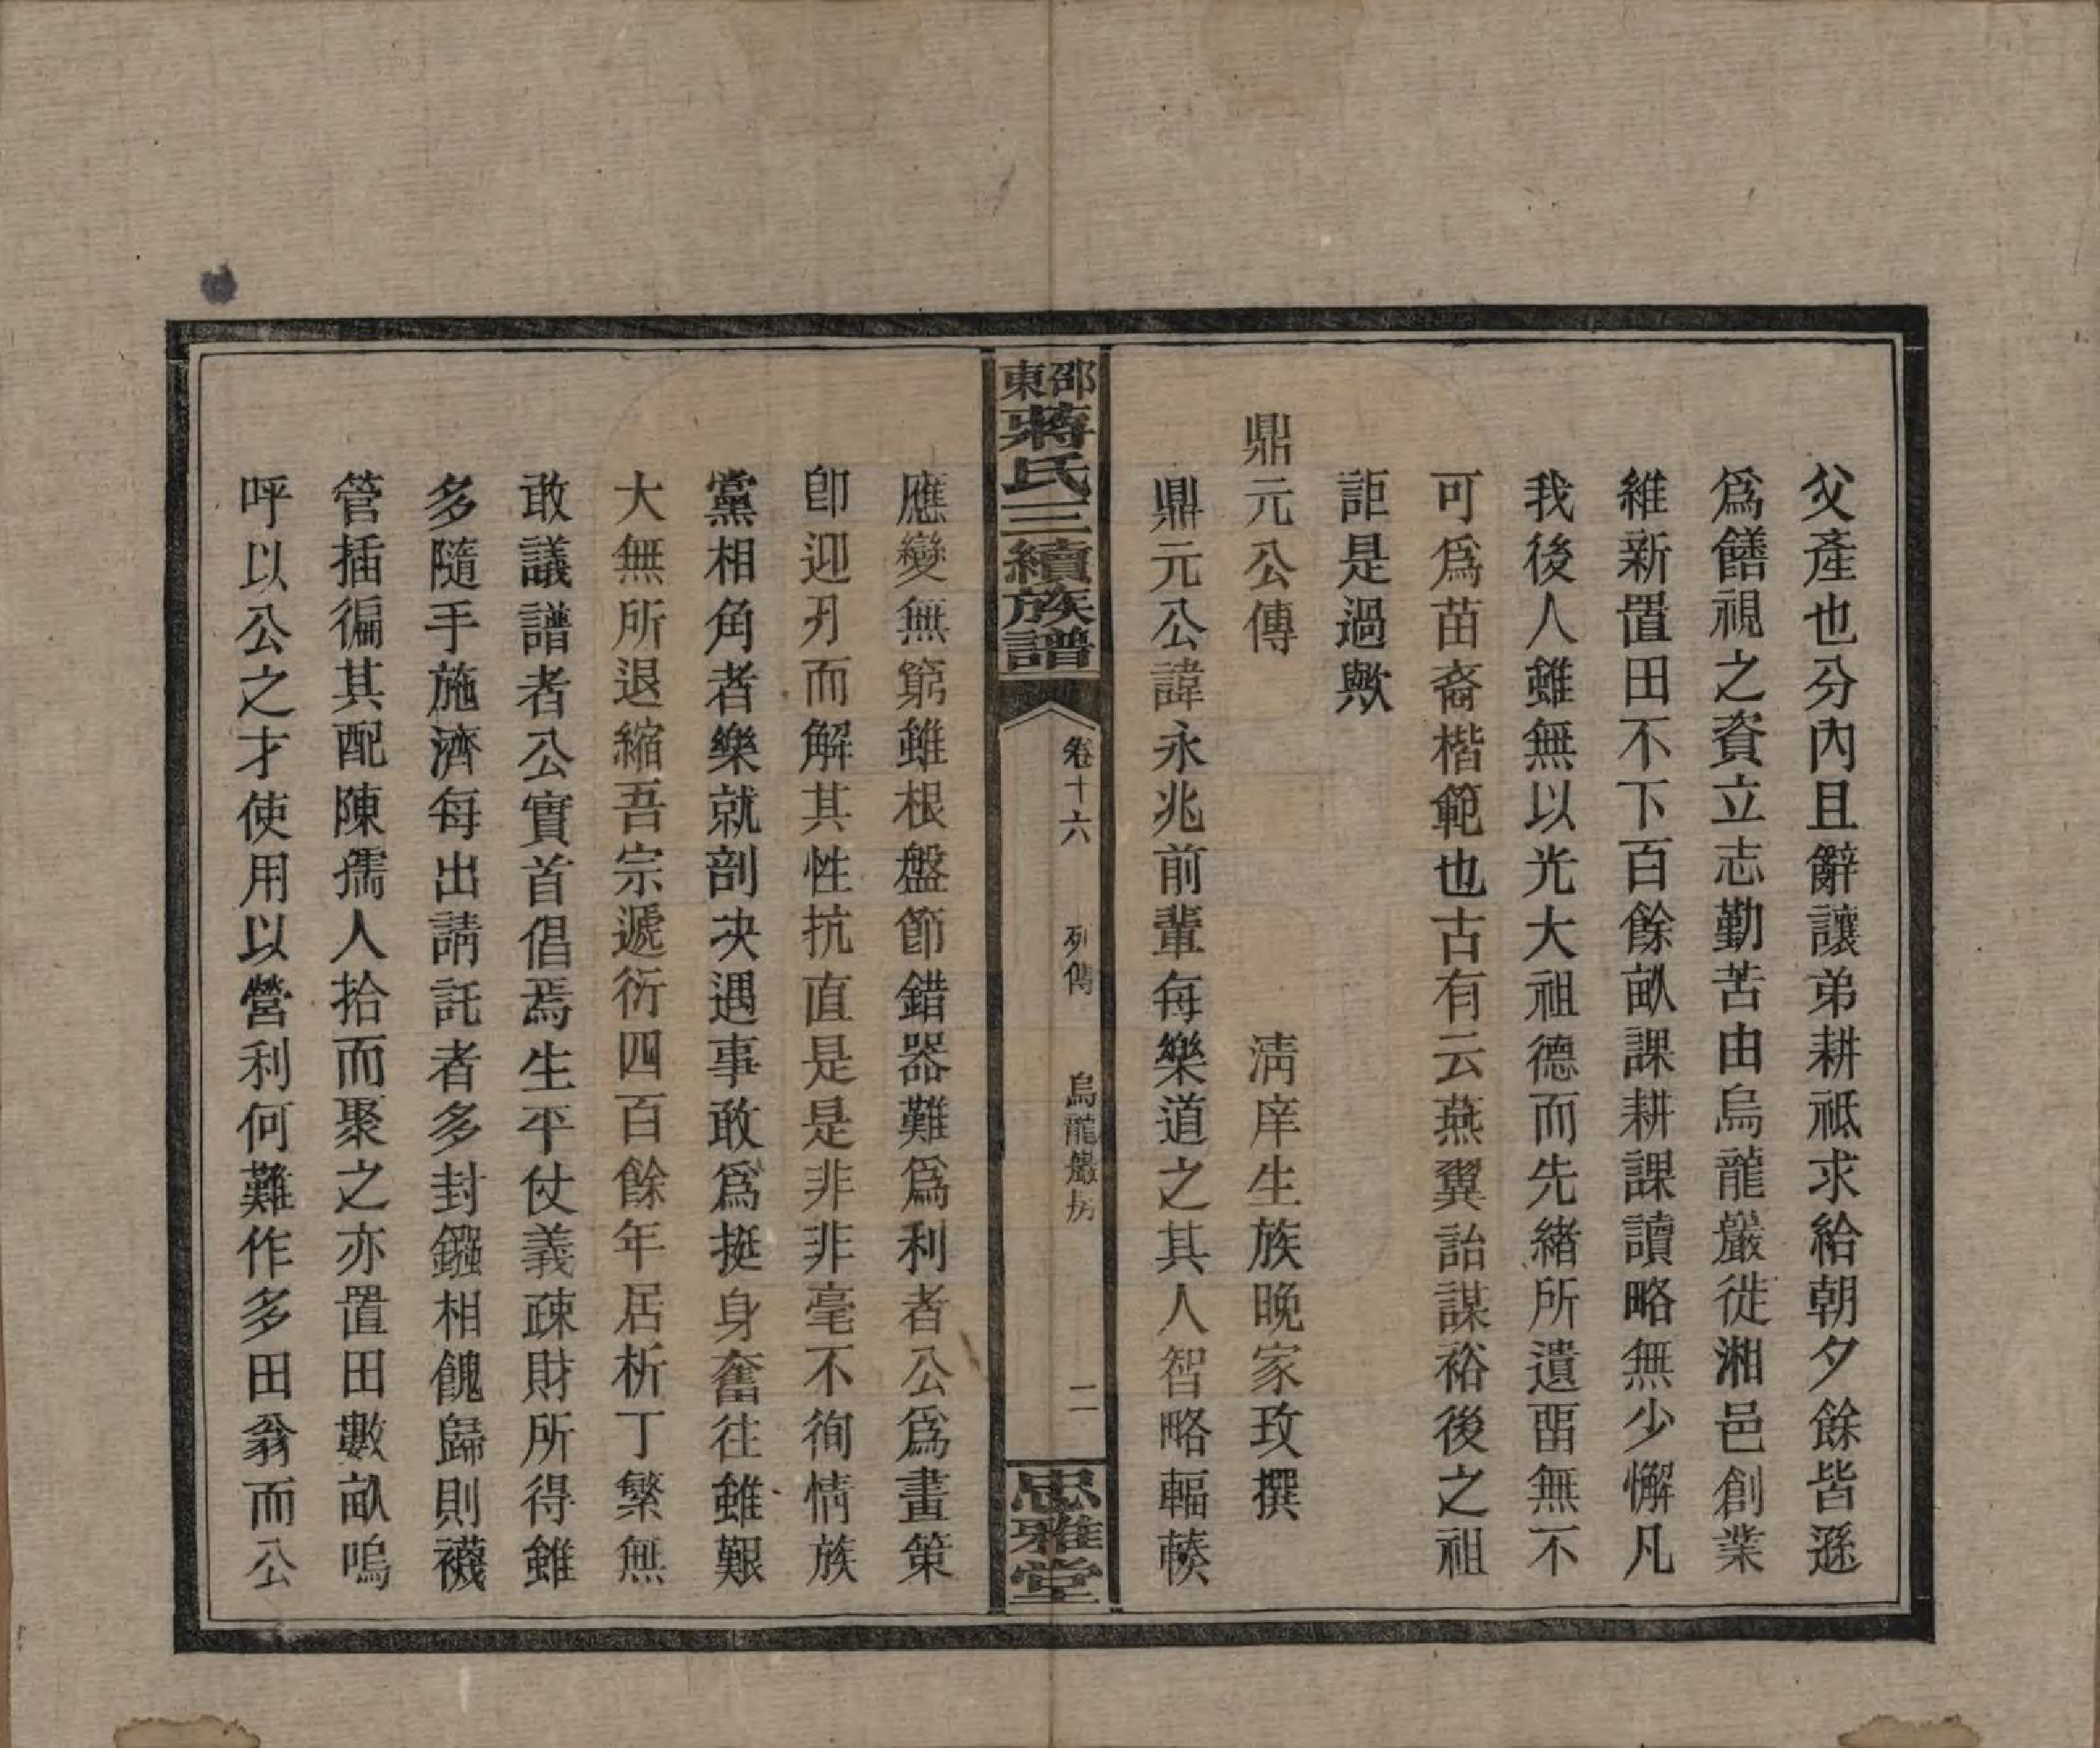 父產也分內且辭讓弟耕祗求給朝夕餘皆遜
爲饍視之資立志勤苦由烏龍巖徙湘邑創業
維新置田不下百餘畝課耕課讀略無少懈凡
我後人雖無以光大祖德而先緒所遺畱無不
可爲苗裔楷範也古有云燕翼詒謀裕後之祖
詎是過歟
鼎元公傳　淸庠生族晚家玫撰
鼎元公諱永兆前輩每樂道之其人智略輻輳
邵東蔣氏三續族譜　卷十六　列傳　烏龍巖房　二　忠雅堂
應變無窮雖根盤節錯器難爲利者公爲畫策
卽迎刃而解其性抗直是是非非毫不徇情族
黨相角者樂就剖决遇事敢爲挺身奮往雖艱
大無所退縮吾宗遞衍四百餘年居析丁繁無
敢議譜者公實首倡焉生平仗義疎財所得雖
多隨手施濟每出請託者多封鏹相餽歸則襪
管插徧其配陳孺人拾而聚之亦置田數畝嗚
呼以公之才使用以營利何難作多田翁而公